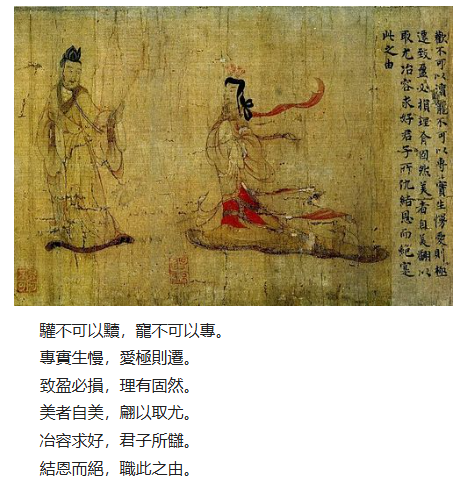 歡不可以瀆寵不可以專實生慢愛則極
遷致盈必損理有固然美者自美翩以
取尤冶容求好君子所仇結恩而絕寔
此之由
驩不可以黷，寵不可以專。
專實生慢，愛極則遷。
致盈必損，理有固然。
美者自美，翩以取尤。
冶容求好，君子所讎。
結恩而絕，職此之由。